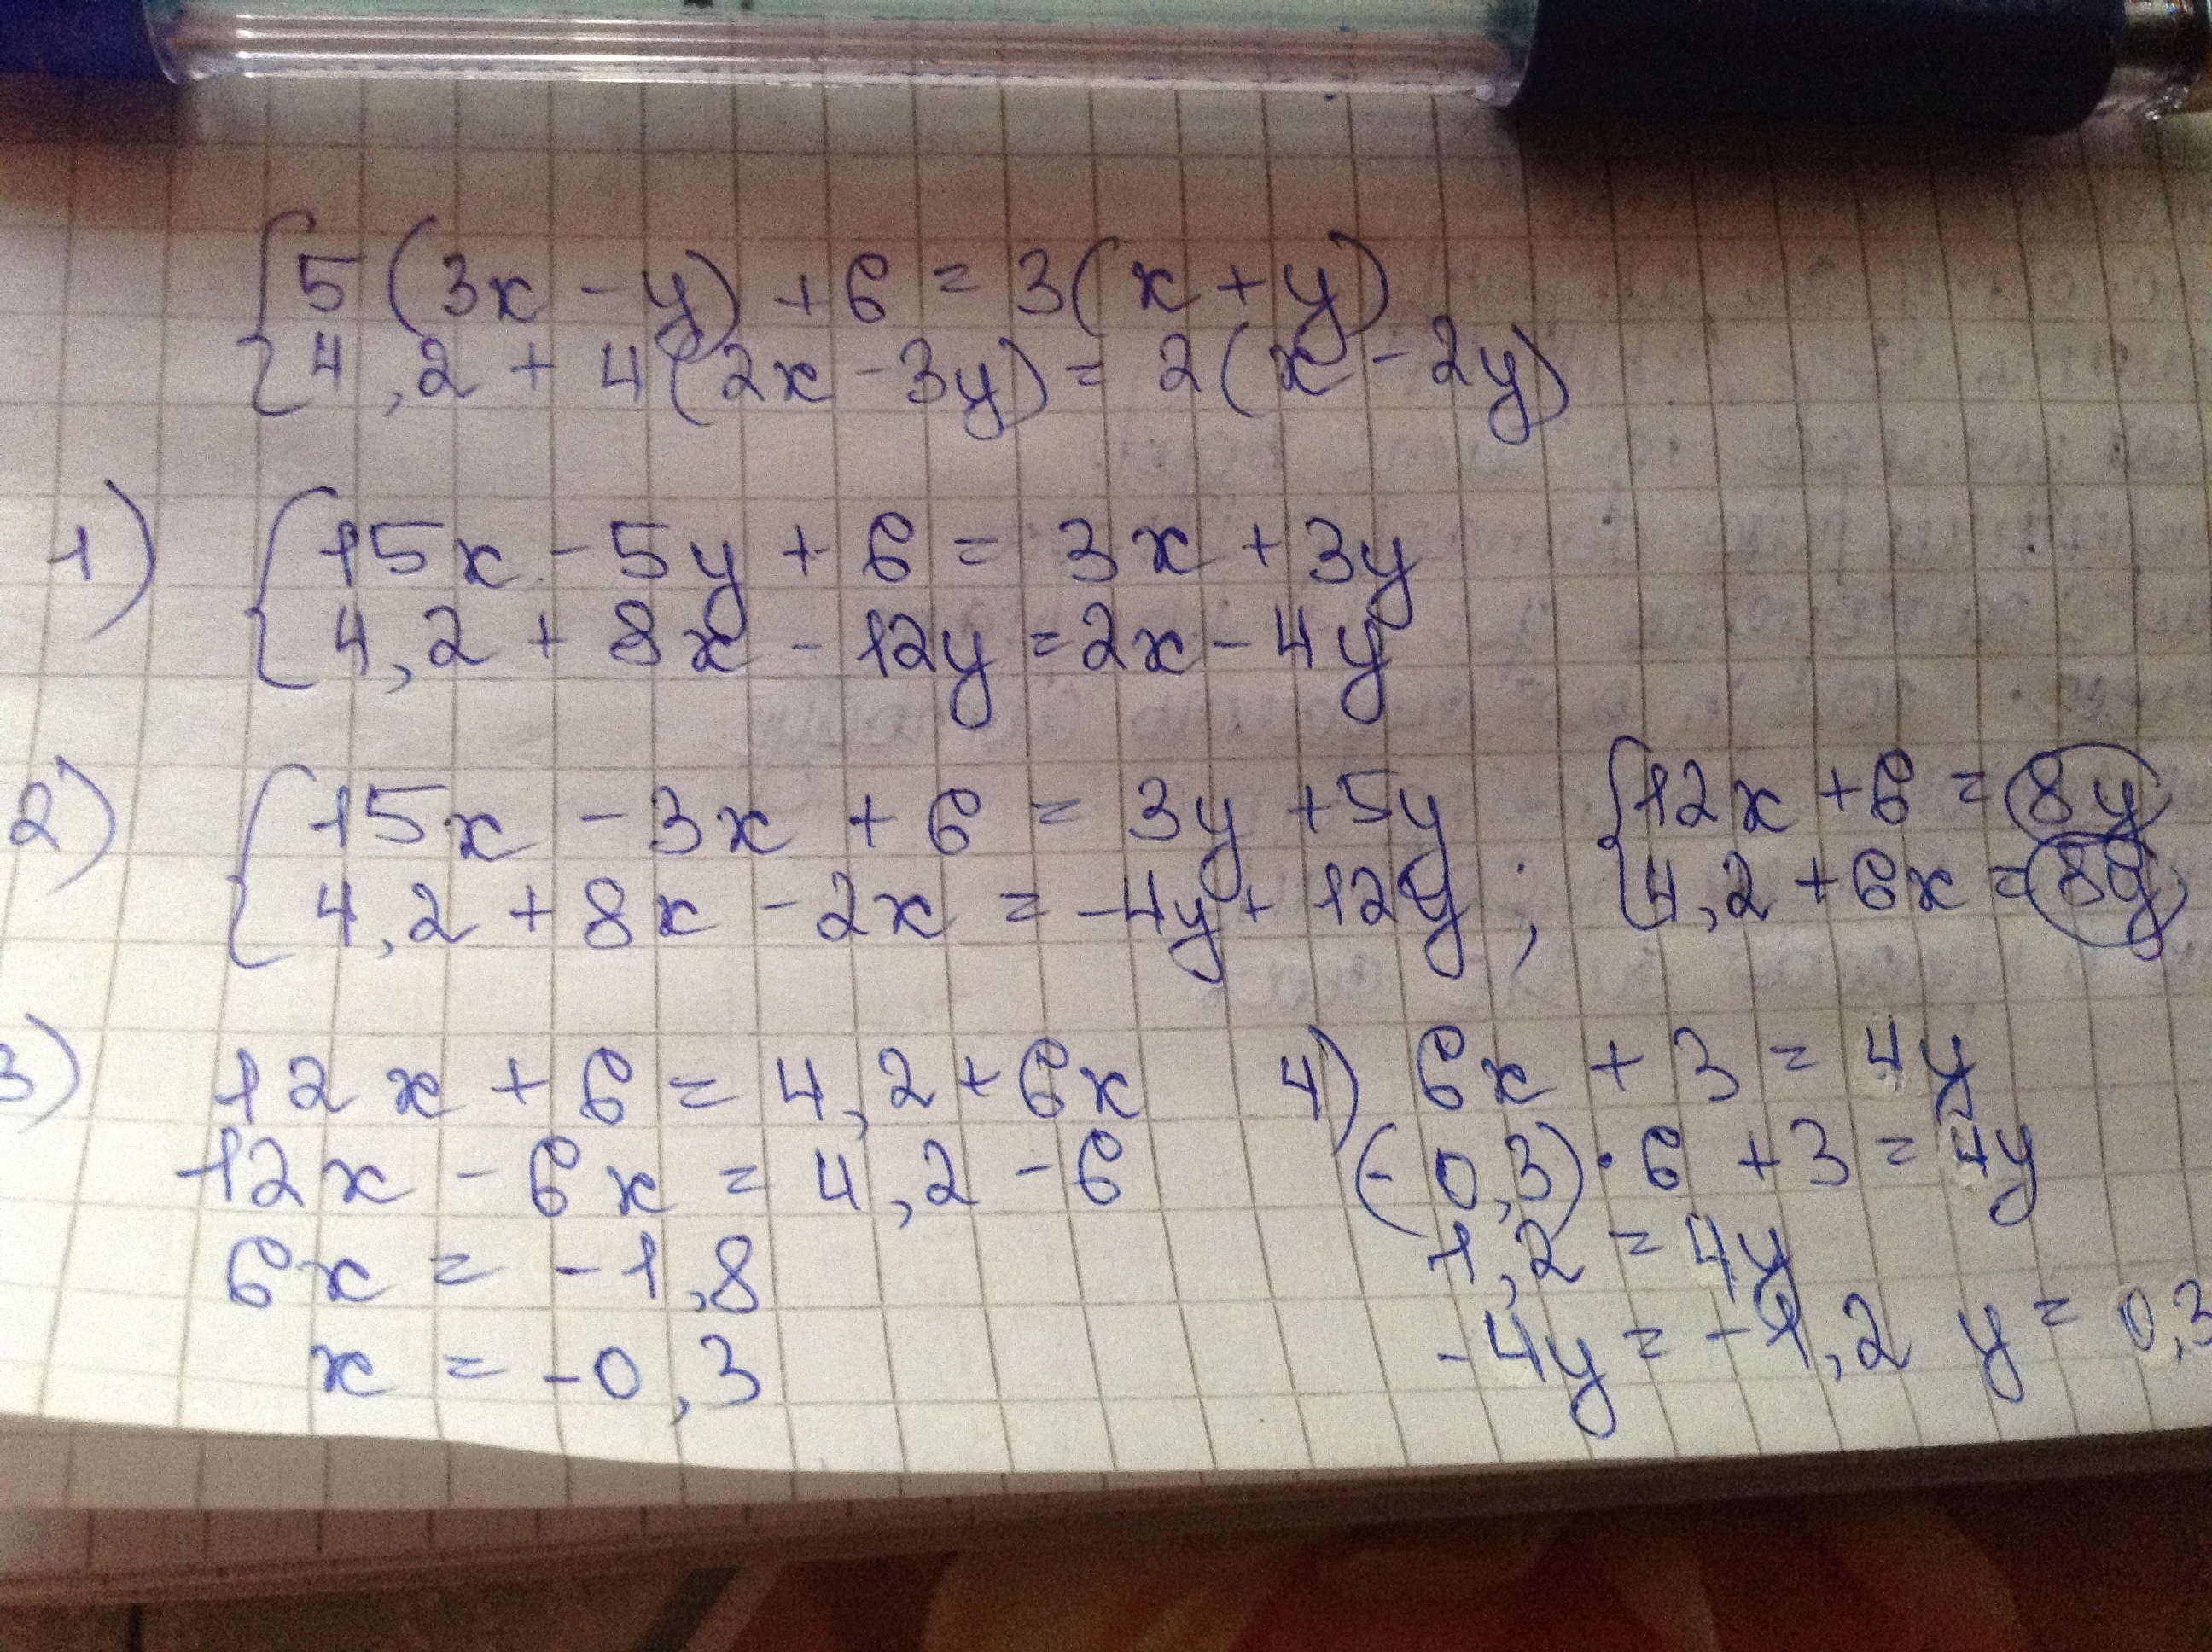 {5(3x - y) + 6 = 3(x + y)
{4,2 + 4(2x - 3y) = 2(x - 2y)
1) {15x - 5y + 6 = 3x + 3y
{4,2 + 8x - 12y = 2x - 4y
2) {15x - 3x + 6 = 3y + 5y
{4,2 + 8x - 2x = -4y + 12y ;
{12x + 6 = 8y
{4,2 + 6x = 8y
3) 12x + 6 = 4,2 + 6x
12x - 6x = 4,2 - 6
6x = -1,8
x = -0,3
4) 6x + 3 = 4y
(-0,3) · 6 + 3 = 4y
1,2 = 4y
-4y = -1,2 y = 0,3